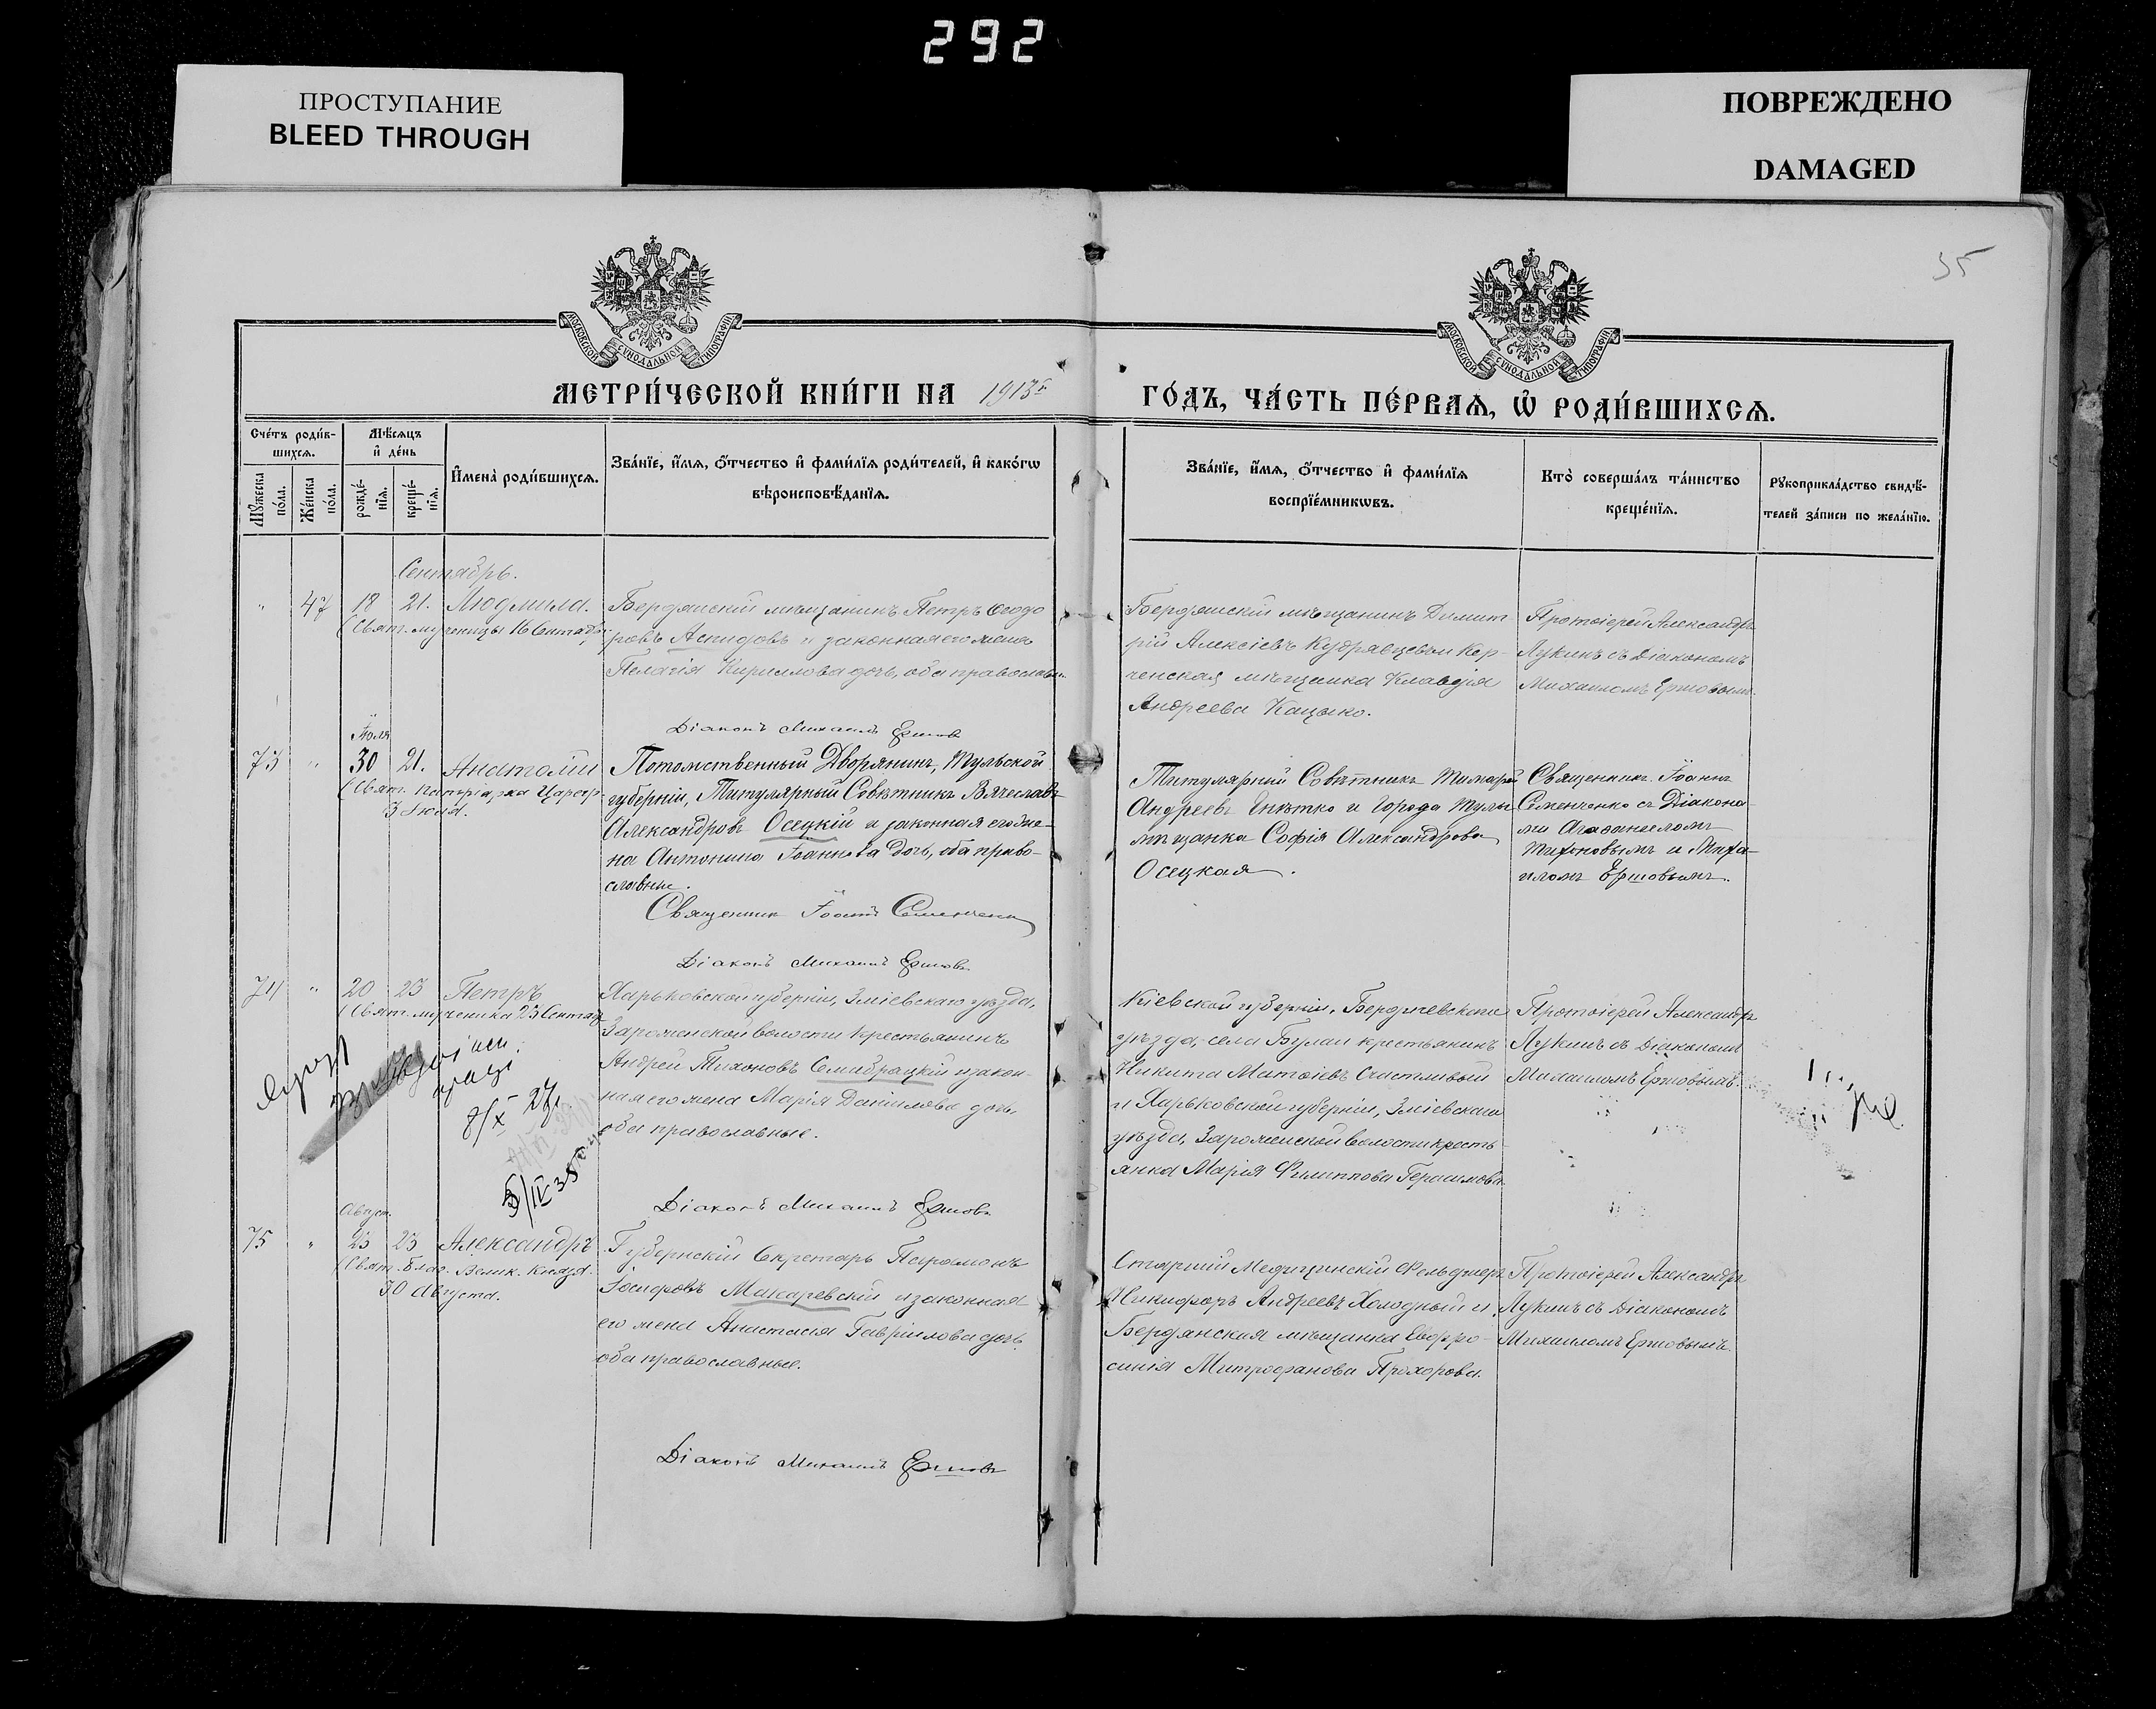 292
ПРОСТУПАНИЕ
BLEED THROUGH
ПОВРЕЖДЕНО
DAMAGED
35
МОСКОВСКОЙ СѴНОДАЛЬНОЙ ТИПОГРАФІИ
МОСКОВСКОЙ СѴНОДАЛЬНОЙ ТИПОГРАФІИ
МЕТРИ́ЧЕСКОЙ КНИ́ГИ НА 1913 г.
ГО́ДЪ, ЧА́СТЬ ПЕ́РВАѦ, Ѡ РОДИ́ВШИХСѦ.
Сче́тъ роди́в-
шихсѧ.
Мꙋжеска
по́ла.
Же́нска
по́ла.
Мѣ́сѧцъ
и҆ де́нь
рожде́-
нїѧ.
креще́-
нїѧ.
И҆мена̀ роди́вшихсѧ.
Зва́нїе, и҆́мѧ, ѻ҆́тчество и҆ фами́лїѧ роди́телей, и҆ како́гѡ
вѣроисповѣ́данїѧ.
Зва́нїе, и҆́мѧ, ѻ҆́тчество и҆ фами́лїѧ
воспрїе́мникѡвъ.
Кто̀ соверша́лъ та́инство
креще́нїѧ.
Рꙋкоприкла́дство свидѣ́-
телей за́писи по жела́нїю.
Сентябрь.
" 47 18 21. Людмила.
(Свят. мученицы 16 Сентяб.
Бердянскій мѣщанинъ Петръ Ѳеодо
ровъ Аспидовъ и законная его жена
Пелагія Кириллова дочь, оба православн.
Бердянскій мѣщанинъ Димит
рій Алексіевъ Кудрявцевъ и Кер-
ченская мѣщанка Клавдія
Андреева Кацыко.
Протоіерей Александръ
Лукинъ съ Діакономъ
Михаиломъ Ершовымъ.
Діаконъ Михаилъ Ершовъ
Іюля
73 " 30 21. Анатолій
(Свят. Патріарха Царегр.
3 Іюля.
Потомственный Дворянинъ, Тульской
губерніи, Титулярный Совѣтникъ Вячеславъ
Александровъ Осецкій и законная его же-
на Антонина Іоаннова дочь, оба право-
славные.
Титулярный Совѣтникъ Тимофей
Андреевъ и города Тулы
мѣщанка Софія Александрова
Осецкая.
Священникъ Іоаннъ
Семенченко съ Діакона-
ми Аѳанасіемъ
Тихоновымъ и Миха-
иломъ Ершовымъ.
Священникъ Іоаннъ Семенченко
Діаконъ Михаилъ Ершовъ
74 " 20 23 Петръ
(Свят. мученика 23 Сентяб.
Харьковской губерніи, Зміевскаго уѣзда,
Зароженской волости крестьянинъ
Андрей Тихоновъ Семибрацкій и закон-
ная его жена Марія Даніилова дочь,
оба православные.
Кіевской губерніи, Бердичевскаго
уѣзда, села Булаи крестьянинъ
Никита Матѳіевъ Счастливый
и Харьковской губерніи, Зміевскаго
уѣзда, Зароженской волости кресть-
янка Марія Филиппова Герасимова.
Протоіерей Александръ
Лукинъ съ Діакономъ
Михаиломъ Ершовымъ.
8/X 27.
5/IV 35
Діаконъ Михаилъ Ершовъ
Август.
75 " 23 23 Александръ
(Свят. Благ. Велик. Князя.
30 Августа.
Губернскій Секретарь Парамонъ
Іосифовъ Макаревскій и законная
его жена Анастасія Гавріилова дочь,
оба православные.
Старшій Медицинскій Фельдшеръ
Никифоръ Андреевъ Холодный и
Бердянская мѣщанка Евфро-
синія Митрофанова Прохорова.
Протоіерей Александръ
Лукинъ съ Діакономъ
Михаиломъ Ершовымъ.
Діаконъ Михаилъ Ершовъ